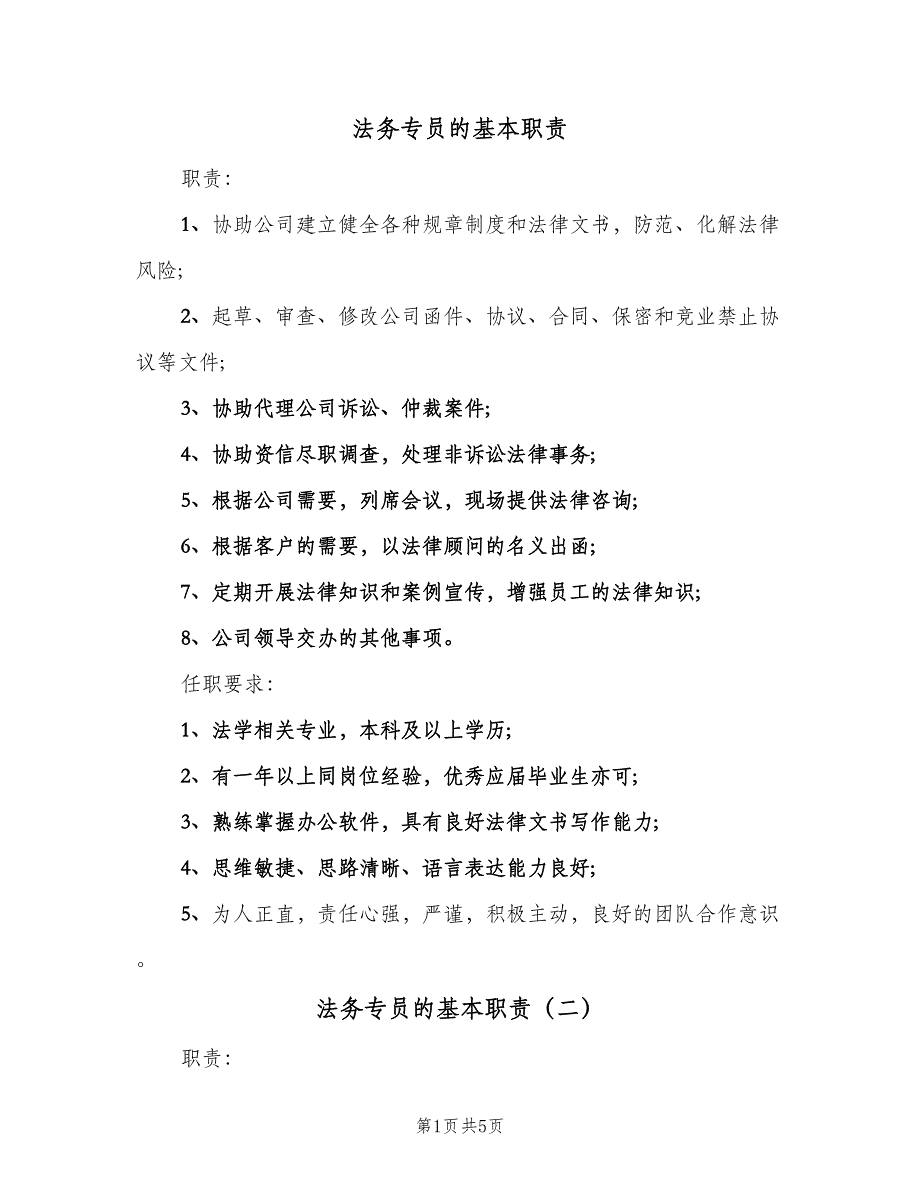 法务专员的基本职责
职责：
1、协助公司建立健全各种规章制度和法律文书，防范、化解法律
风险;
2、起草、审查、修改公司函件、协议、合同、保密和竞业禁止协
议等文件;
3、协助代理公司诉讼、仲裁案件;
4、协助资信尽职调查，处理非诉讼法律事务;
5、根据公司需要，列席会议，现场提供法律咨询;
6、根据客户的需要，以法律顾问的名义出函;
7、定期开展法律知识和案例宣传，增强员工的法律知识;
8、公司领导交办的其他事项。
任职要求：
1、法学相关专业，本科及以上学历;
2、有一年以上同岗位经验，优秀应届毕业生亦可;
3、熟练掌握办公软件，具有良好法律文书写作能力;
4、思维敏捷、思路清晰、语言表达能力良好;
5、为人正直，责任心强，严谨，积极主动，良好的团队合作意识
。
法务专员的基本职责（二）
职责：
第1页共5页